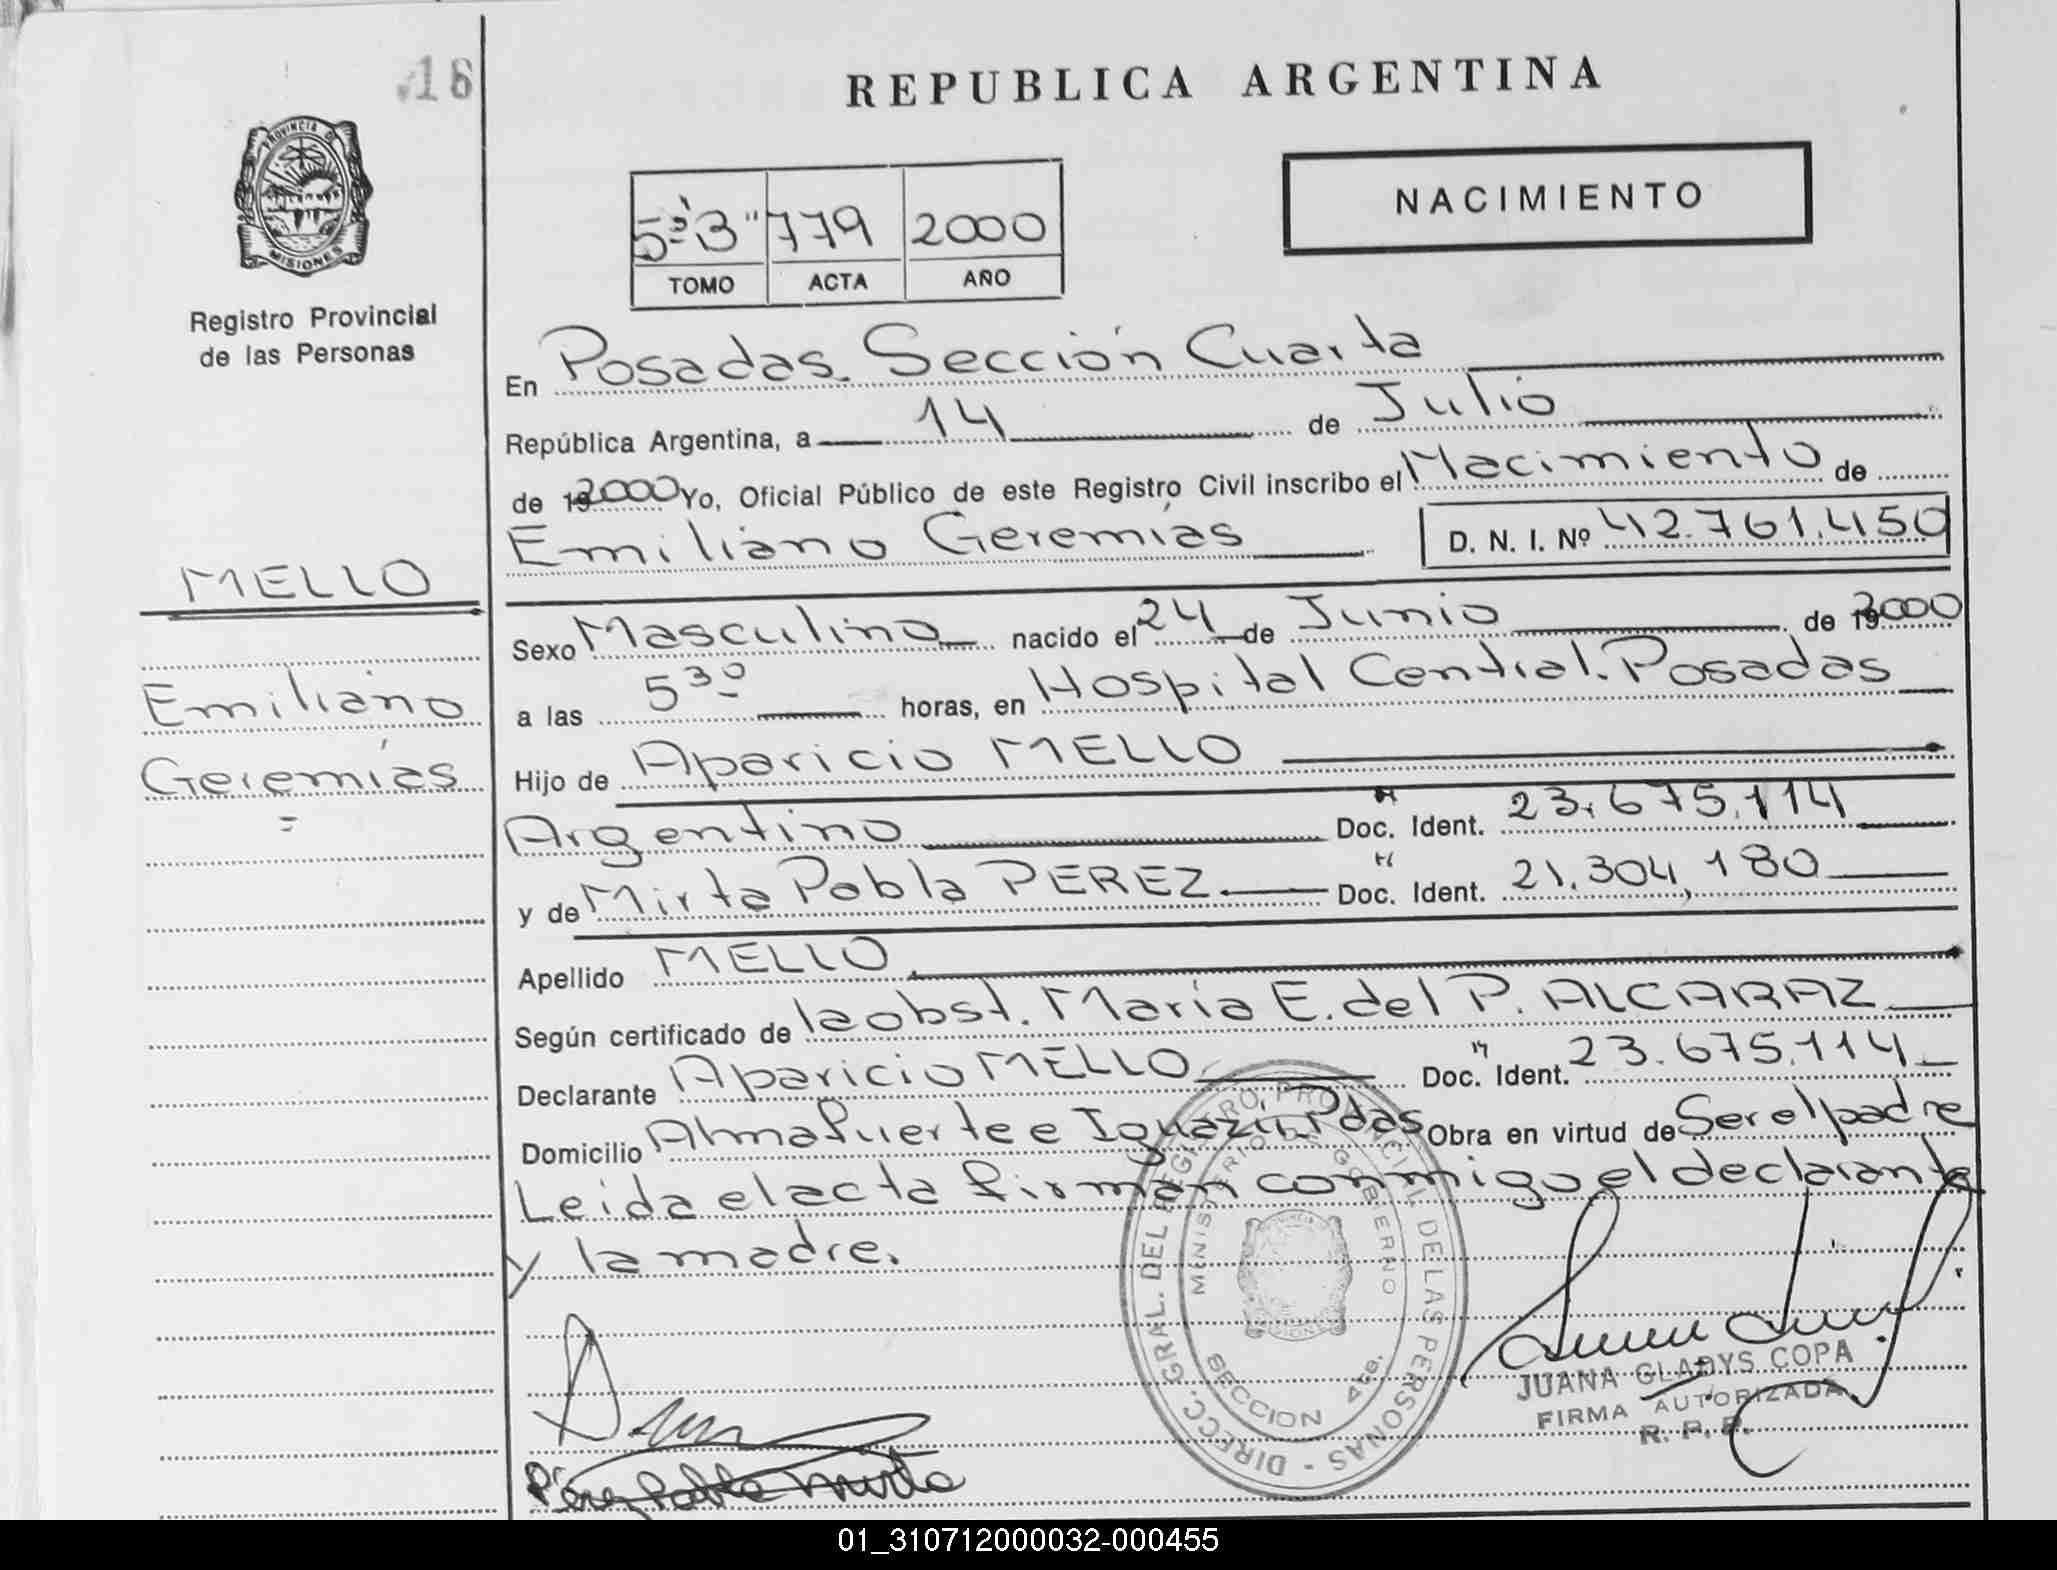 18
REPUBLICA ARGENTINA
PROVINCIA DE
MISIONES
Registro Provincial
de las Personas
5º "B" 779 2000
TOMO ACTA AÑO
NACIMIENTO
En Posadas. Sección Cuarta
República Argentina, a 14 de Julio
de 2000 Yo, Oficial Público de este Registro Civil inscribo el Nacimiento de
Emiliano Geremías D. N. I. Nº 42.761.450
MELLO
Emiliano
Geremías
Sexo Masculino nacido el 24 de Junio de 2000
a las 5 30 horas, en Hospital Central. Posadas
Hijo de Aparicio MELLO
Argentino Doc. Ident. 23.675.114
y de Mirta Pabla PEREZ Doc. Ident. 21.304.180
Apellido MELLO
Según certificado de la obst. María E. del P. ALCARAZ
Declarante Aparicio MELLO Doc. Ident. 23.675.114
Domicilio Almafuerte e Iguazú. Pdas Obra en virtud de Ser el padre
Leida el acta firman conmigo el declarante
y la madre.
DIRECC. GRAL. DEL REGISTRO PROVINCIAL DE LAS PERSONAS
MINISTERIO DE GOBIERNO
SECCION 4ta.
JUANA GLADYS COPA
FIRMA AUTORIZADA
R. P. P.
Pérez Pabla Mirta
01_310712000032-000455